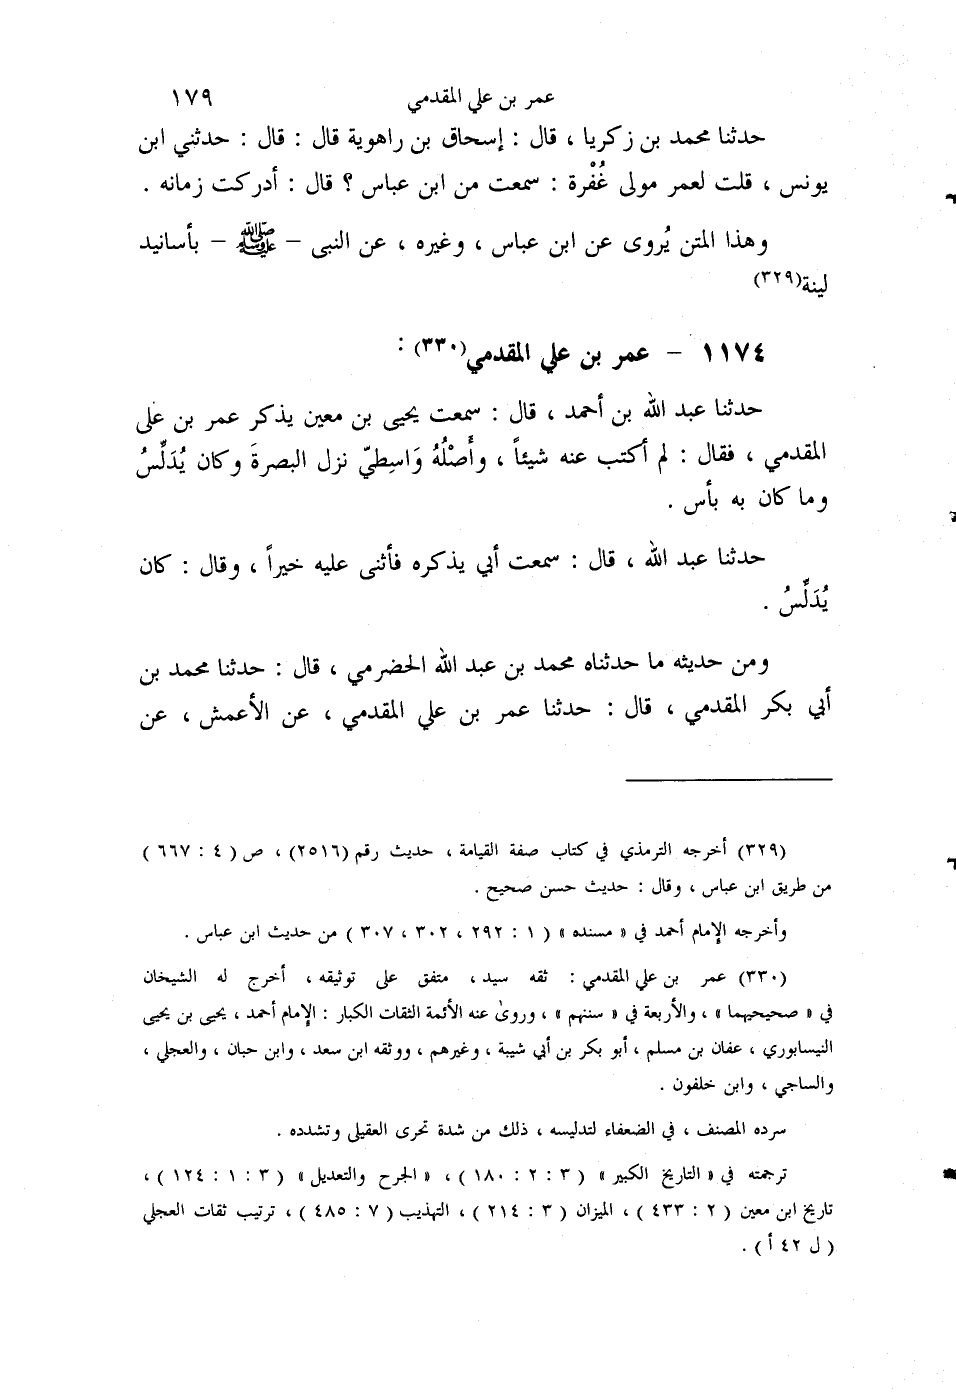 عمر بن علي المقدمي ١٧٩
حدثنا محمد بن زكريا ، قال : إسحاق بن راهوية قال : قال : حدثني ابن
يونس ، قلت لعمر مولى غُفْرة : سمعت من ابن عباس ؟ قال : أدركت زمانه .
وهذا المتن يُروى عن ابن عباس ، وغيره ، عن النبى – ﷺ – بأسانيد
لينة(٣٢٩)
١١٧٤ – عمر بن علي المقدمي(٣٣٠) :
حدثنا عبد الله بن أحمد ، قال : سمعت يحيى بن معين يذكر عمر بن على
المقدمي ، فقال : لم أكتب عنه شيئاً ، وأَصْلُهُ وَاسِطيّ نزل البصرةَ وكان يُدَلِّسُ
وما كان به بأس .
حدثنا عبد الله ، قال : سمعت أبي يذكره فأثنى عليه خيراً ، وقال : كان
يُدَلِّسُ .
ومن حديثه ما حدثناه محمد بن عبد الله الحضرمي ، قال : حدثنا محمد بن
أبي بكر المقدمي ، قال : حدثنا عمر بن علي المقدمي ، عن الأعمش ، عن
(٣٢٩) أخرجه الترمذي في كتاب صفة القيامة ، حديث رقم (٢٥١٦) ، ص ( ٤ : ٦٦٧ )
من طريق ابن عباس ، وقال : حديث حسن صحيح .
وأخرجه الإمام أحمد في « مسنده » ( ١ : ٢٩٢ ، ٣٠٢ ، ٣٠٧ ) من حديث ابن عباس .
(٣٣٠) عمر بن علي المقدمي : ثقه سيد ، متفق على توثيقه ، أخرج له الشيخان
في « صحيحيهما » ، والأربعة في « سننهم » ، وروىٰ عنه الأئمة الثقات الكبار : الإمام أحمد ، يحيى بن يحيى
النيسابوري ، عفان بن مسلم ، أبو بكر بن أبي شيبة ، وغيرهم ، ووثقه ابن سعد ، وابن حبان ، والعجلي ،
والساجي ، وابن خلفون .
سرده المصنف ، في الضعفاء لتدليسه ، ذلك من شدة تحرى العقيلى وتشدده .
ترجمته في « التاريخ الكبير » ( ٣ : ٢ : ١٨٠ ) ، « الجرح والتعديل » ( ٣ : ١ : ١٢٤ ) ،
تاريخ ابن معين ( ٢ : ٤٣٣ ) ، الميزان ( ٣ : ٢١٤ ) ، التهذيب ( ٧ : ٤٨٥ ) ، ترتيب ثقات العجلي
( ل ٤٢ أ ) .